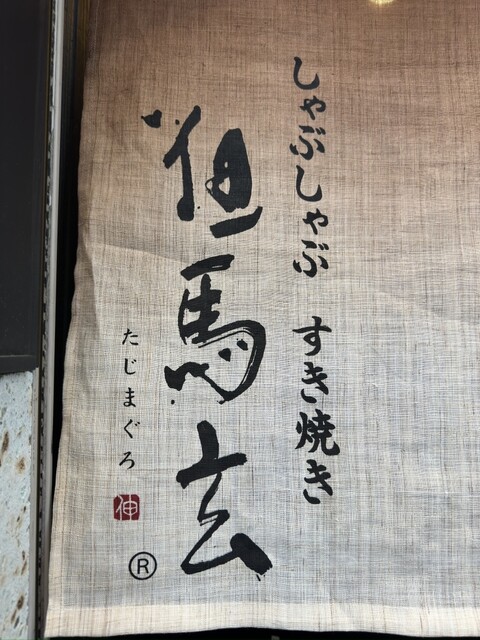 しゃぶしゃぶ すき焼き
但馬玄
たじまぐろ
伸
®